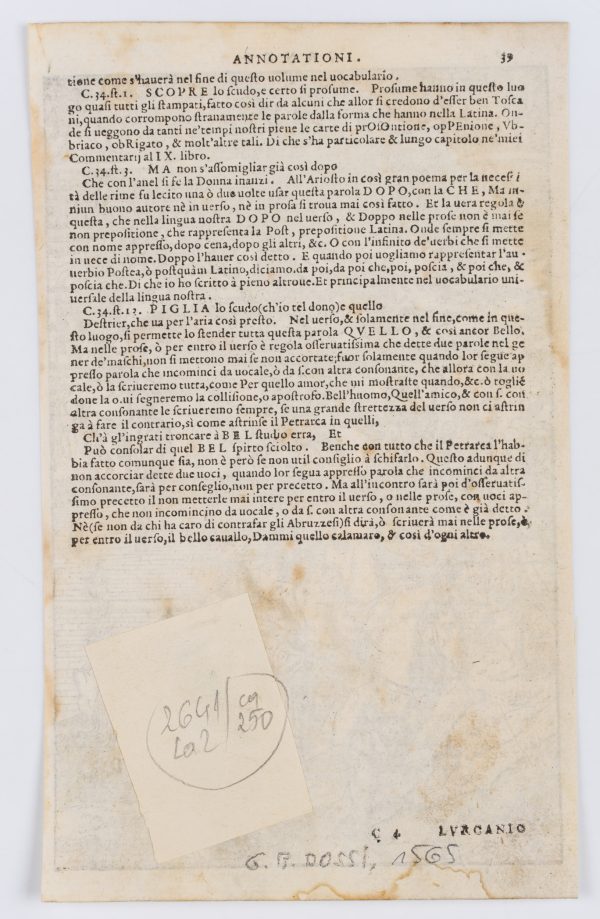 ANNOTATIONI. 39
tione come s'hauerà nel fine di questo uolume nel uocabulario.
C.34.st.1. SCOPRE lo scudo,e certo si prosume. Prosume hanno in questo luo
go quasi tutti gli stampati,fatto così dir da alcuni che allor si credono d'esser ben Tosca
ni,quando corrompono stranamente le parole dalla forma che hanno nella Latina. On-
de si ueggono da tanti ne'tempi nostri piene le carte di prOsOntione, opPEnione, Vb-
briaco, obRigato, & molt'altre tali. Di che s'ha particolare & lungo capitolo ne'miei
Commentarij al IX. libro.
C.34.st.3. MA non s'assomigliar già così dopo
Che con l'anel si fe la Donna inanzi. All'Ariosto in così gran poema per la necessi
tà delle rime fu lecito una ò due uolte usar questa parola DOPO, con la CHE, Ma in
niun buono autore nè in uerso, nè in prosa si troua mai così fatto. Et la uera regola è
questa, che nella lingua nostra DOPO nel uerso, & Doppo nelle prose non è mai se
non prepositione, che rappresenta la Post, prepositione Latina. Onde sempre si mette
con nome appresso,dopo cena,dopo gli altri, &c. O con l'infinito de'uerbi che si mette
in uece di nome.Doppo l'hauer così detto. E quando poi uogliamo rappresentar l'au-
uerbio Postea,ò postquàm Latino,diciamo,da poi,da poi che,poi, poscia, & poi che, &
poscia che.Di che io ho scritto à pieno altroue.Et principalmente nel uocabulario uni-
uersale della lingua nostra.
C.34.st.1?. PIGLIA lo scudo(ch'io tel dono)e quello
Destrier,che ua per l'aria così presto. Nel uerso,& solamente nel fine,come in que-
sto luogo,si permette lo stender tutta questa parola QVELLO, & così ancor Bello.
Ma nelle prose, ò per entro il uerso è regola osseruatissima che dette due parole nel ge
ner de'maschi,non si mettono mai se non accortate;fuor solamente quando lor segue ap
presso parola che incominci da uocale,ò da s.con altra consonante, che allora con la uo
cale,ò la scriueremo tutta,come Per quello amor,che mi mostraste quando,&c.ò toglié
done la o.ui segneremo la collisione,o apostrofo.Bell'huomo,Quell'amico,& con s. con
altra consonante le scriueremo sempre, se una grande strettezza del uerso non ci astrin
ga à fare il contrario,sì come astrinse il Petrarca in quelli,
Ch'à gl'ingrati troncare à BEL studio erra, Et
Può consolar di quel BEL spirto sciolto. Benche con tutto che il Petrarca l'hab-
bia fatto comunque sia, non è però se non util consiglio à schifarlo. Questo adunque di
non accorciar dette due uoci, quando lor segua appresso parola che incominci da altra
consonante,sarà per conseglio,non per precetto. Ma all'incontro sarà poi d'osseruatis-
simo precetto il non metterle mai intere per entro il uerso, o nelle prose, con uoci ap-
presso, che non incomincino da uocale, o da s. con altra consonante come è già detto.
Nè(se non da chi ha caro di contrafar gli Abruzzesi)si dirà, ò scriuerà mai nelle prose,ò
per entro il uerso,il bello cauallo, Dammi quello calamaro, & così d'ogni altro.
2641 / cg
La2 250
C 4 LVRCANIO
G. B. DOSSI, 1565